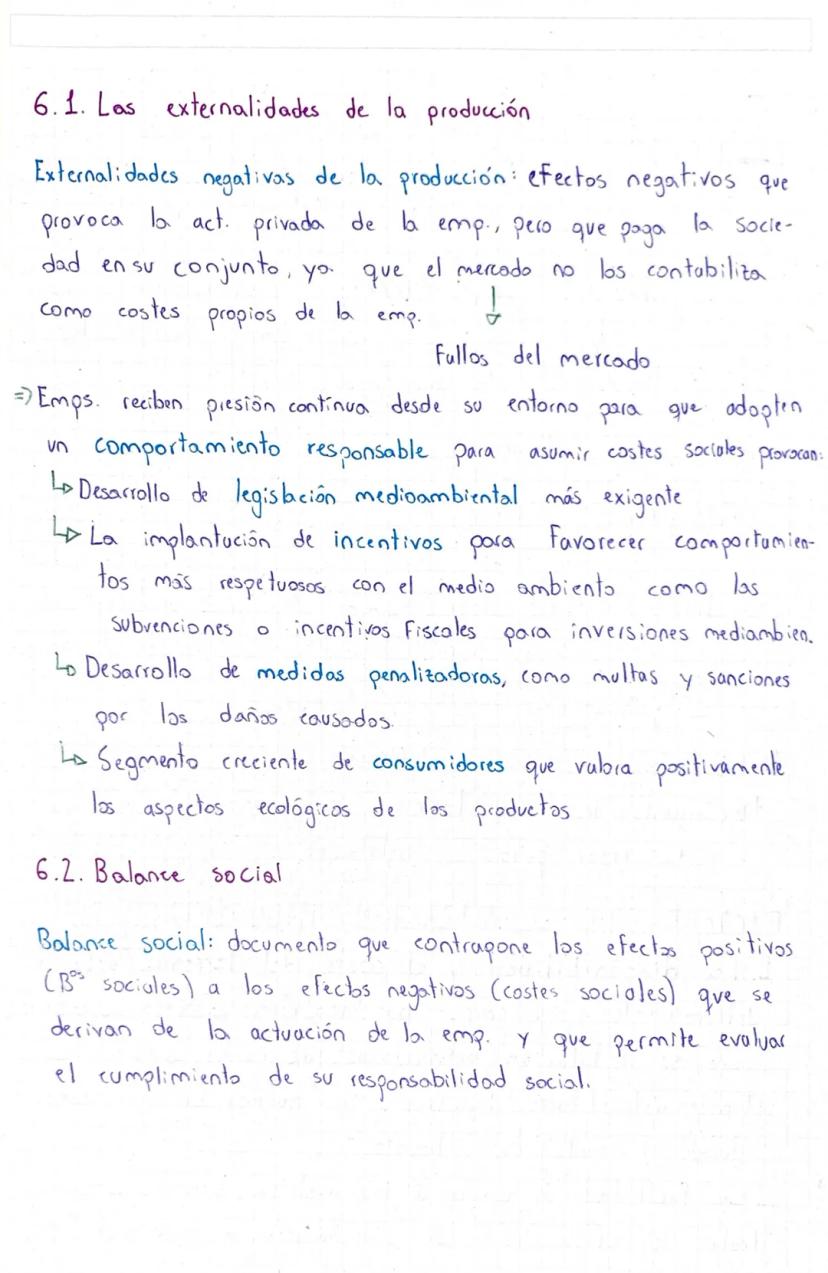 6.1. Las externalidades de la producción
Externalidades negativas de la producción: efectos negativos que
provoca la act. privada de la emp., pero que paga la socie-
dad en su conjunto, ya que el mercado no los contabiliza
como costes propios de la emp.
Fallos del mercado
=> Emps. reciben presión contínua desde su entorno para que adopten
un comportamiento responsable para asumir costes sociales provocan:
↳ Desarrollo de legislación medioambiental más exigente
↳ La implantación de incentivos para favorecer comportamien-
tos más respetuosos con el medio ambiento como las
subvenciones o incentivos fiscales para inversiones mediambien.
↳ Desarrollo de medidas penalizadoras, como multas y sanciones
por los daños causados.
↳ Segmento creciente de consumidores que valora positivamente
los aspectos ecológicos de los productos
6.2. Balance social
Balance social: documento que contrapone los efectos positivos
(Bºs sociales) a los efectos negativos (costes sociales) que se
derivan de la actuación de la emp. y que permite evaluar
el cumplimiento de su responsabilidad social.